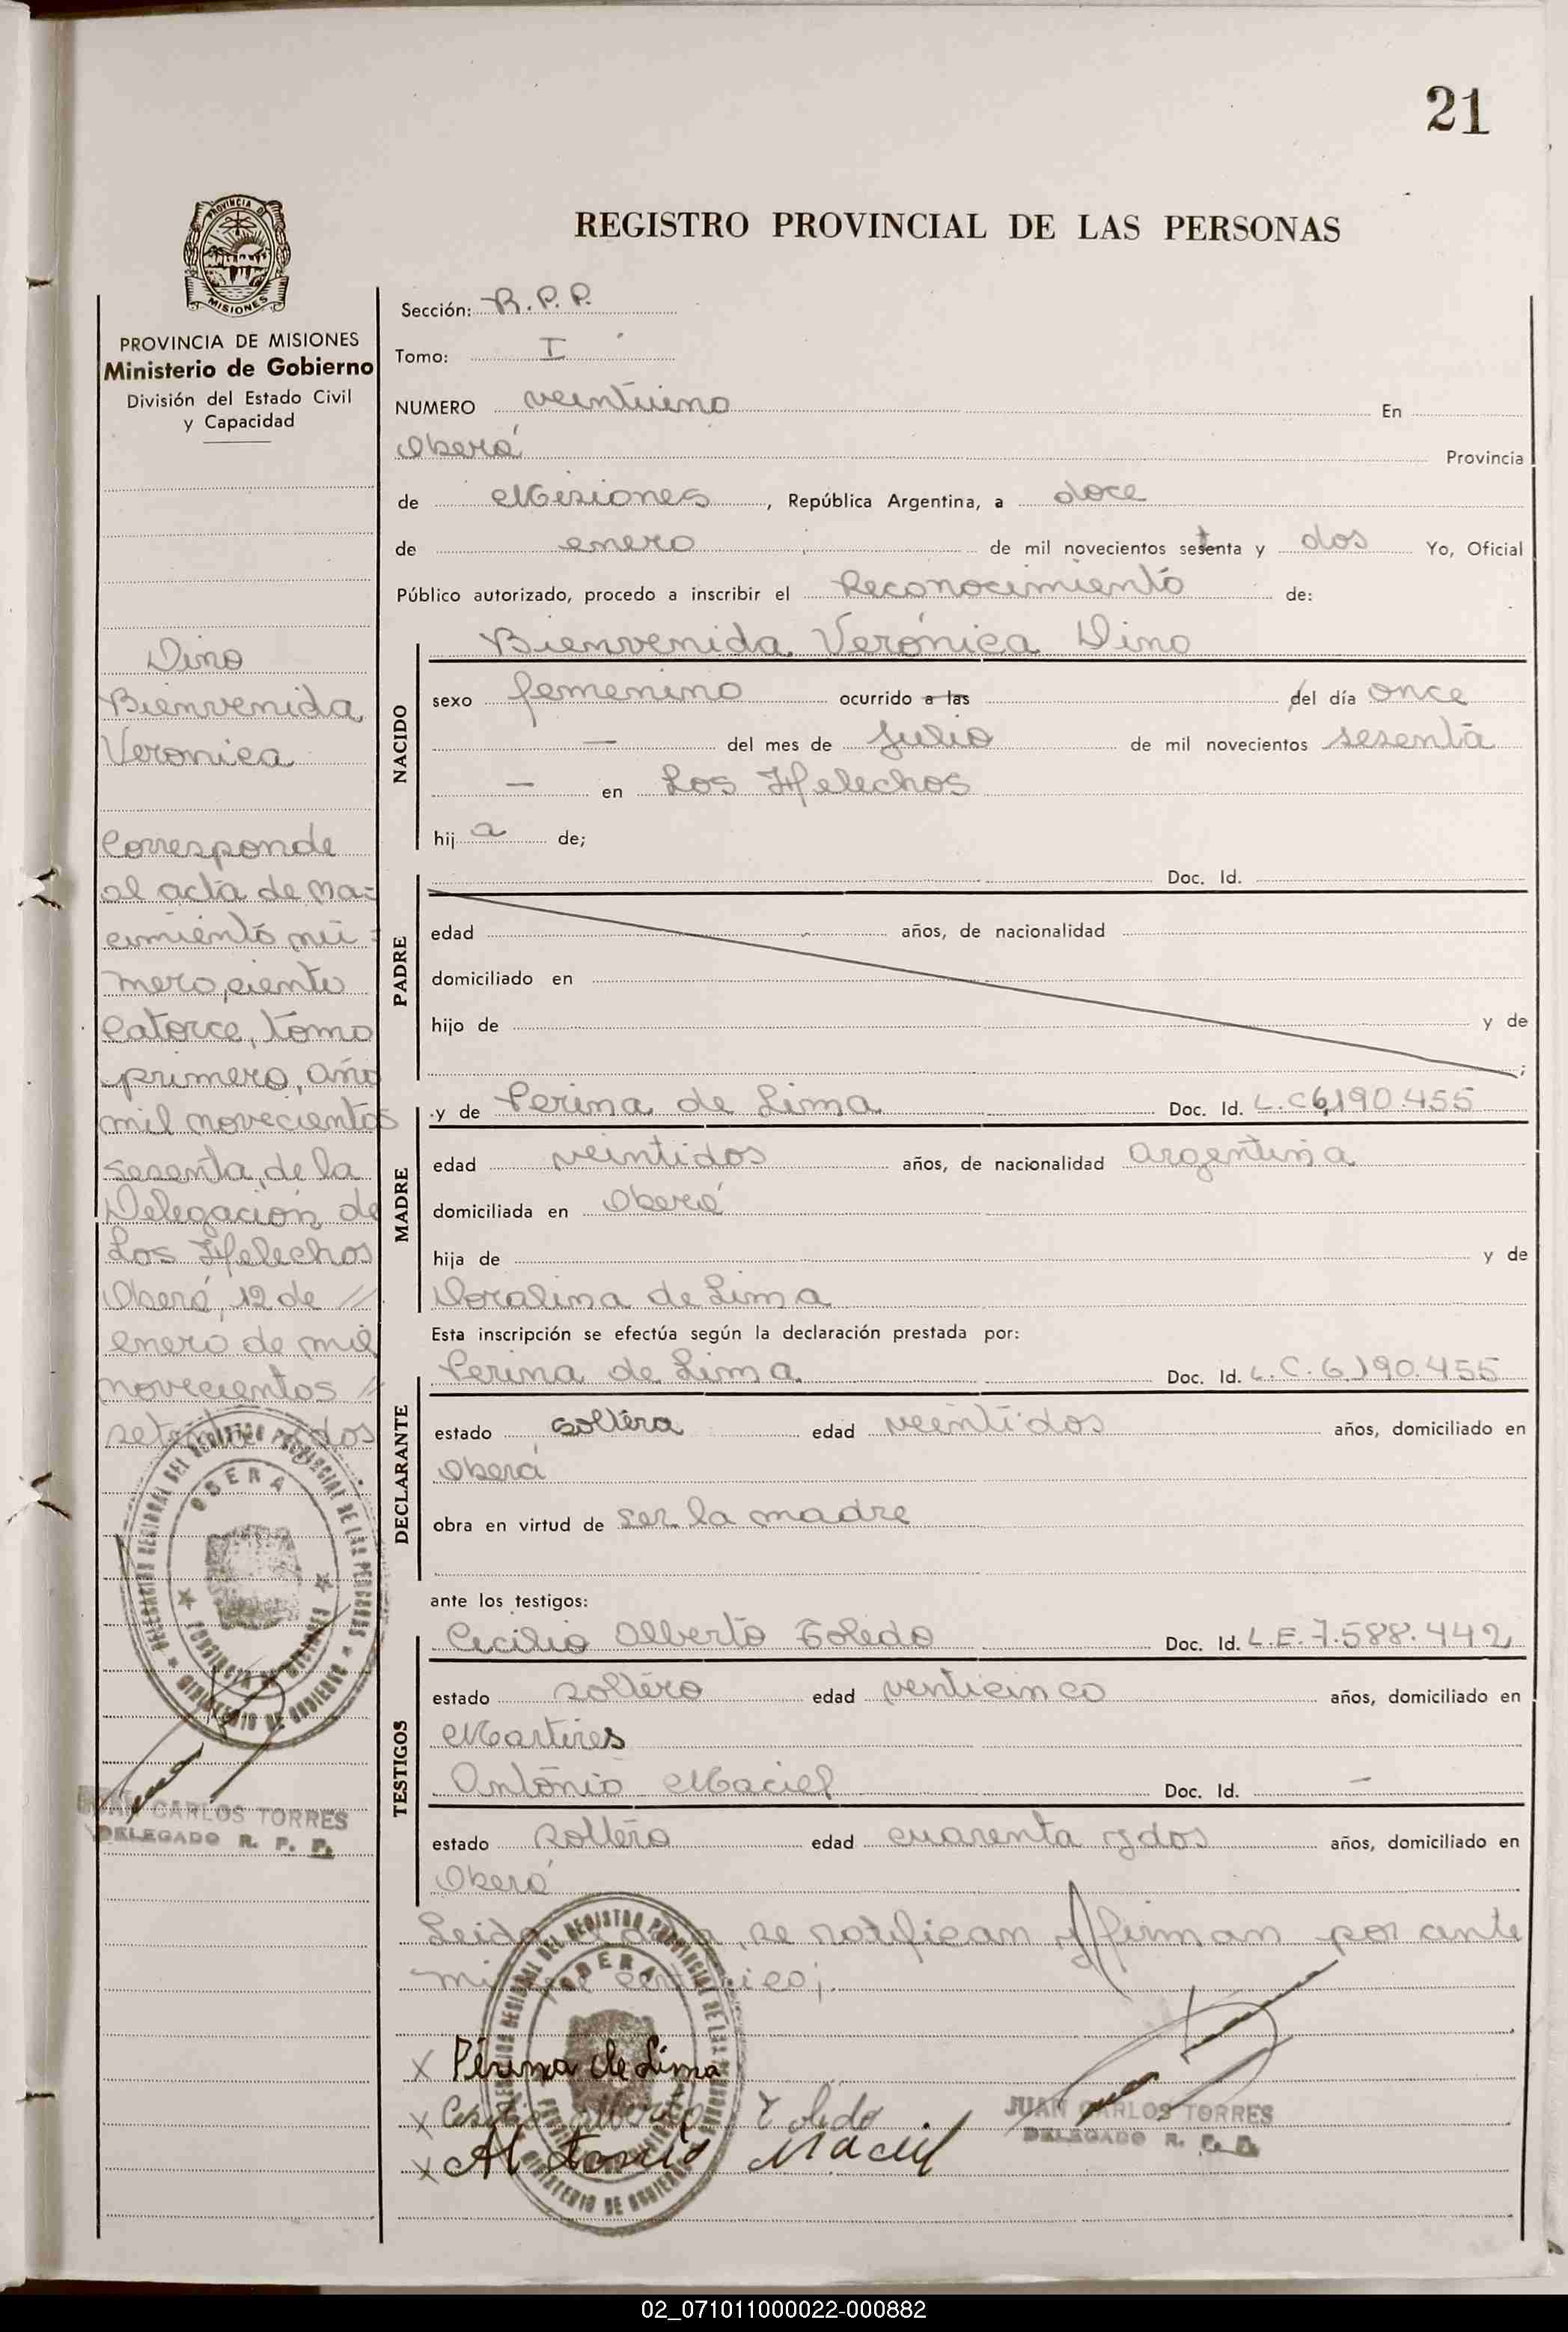 21
REGISTRO PROVINCIAL DE LAS PERSONAS
PROVINCIA DE MISIONES
PROVINCIA DE MISIONES
Ministerio de Gobierno
División del Estado Civil
y Capacidad
Dino
Bienvenida
Veronica
Corresponde
al acta de na=
cimiento nú=
mero, ciento
catorce, tomo
primero, año
mil novecientos
sesenta, de la
Delegación de
Los Helechos
Oberá, 12 de //
enero de mil
novecientos //
setenta y dos
JUAN CARLOS TORRES
DELEGADO R. P. P.
Sección: R.P.P.
Tomo: I
NUMERO veintiuno En
Oberá Provincia
de Misiones, República Argentina, a doce
de enero de mil novecientos setenta y dos Yo, Oficial
Público autorizado, procedo a inscribir el Reconocimiento de:
NACIDO
Bienvenida Verónica Dino
sexo femenino ocurrido a las del día once
— del mes de Julio de mil novecientos sesenta
— en Los Helechos
hija de;
PADRE
Doc. Id.
edad años, de nacionalidad
domiciliado en
hijo de y de
;
MADRE
y de Perina de Lima Doc. Id. L.C 6.190.455
edad veintidos años, de nacionalidad argentina
domiciliada en Oberá
hija de y de
Doralina de Lima
Esta inscripción se efectúa según la declaración prestada por:
DECLARANTE
Perina de Lima Doc. Id. L.C. 6.190.455
estado soltera edad veintidos años, domiciliado en
Oberá
obra en virtud de ser la madre
ante los testigos:
TESTIGOS
Cecilio Alberto Toledo Doc. Id. L.E. 7.588.442
estado soltero edad venticinco años, domiciliado en
Martires
Antonio Maciel Doc. Id. —
estado soltero edad cuarenta y dos años, domiciliado en
Oberá
Leida , se notifican y firman por ante
mi que certifico;
OBERA
x Périma de Lima
x Cecilio Alberto Toledo
x Antonio Maciel
JUAN CARLOS TORRES
DELEGADO R. P. P.
02_071011000022-000882